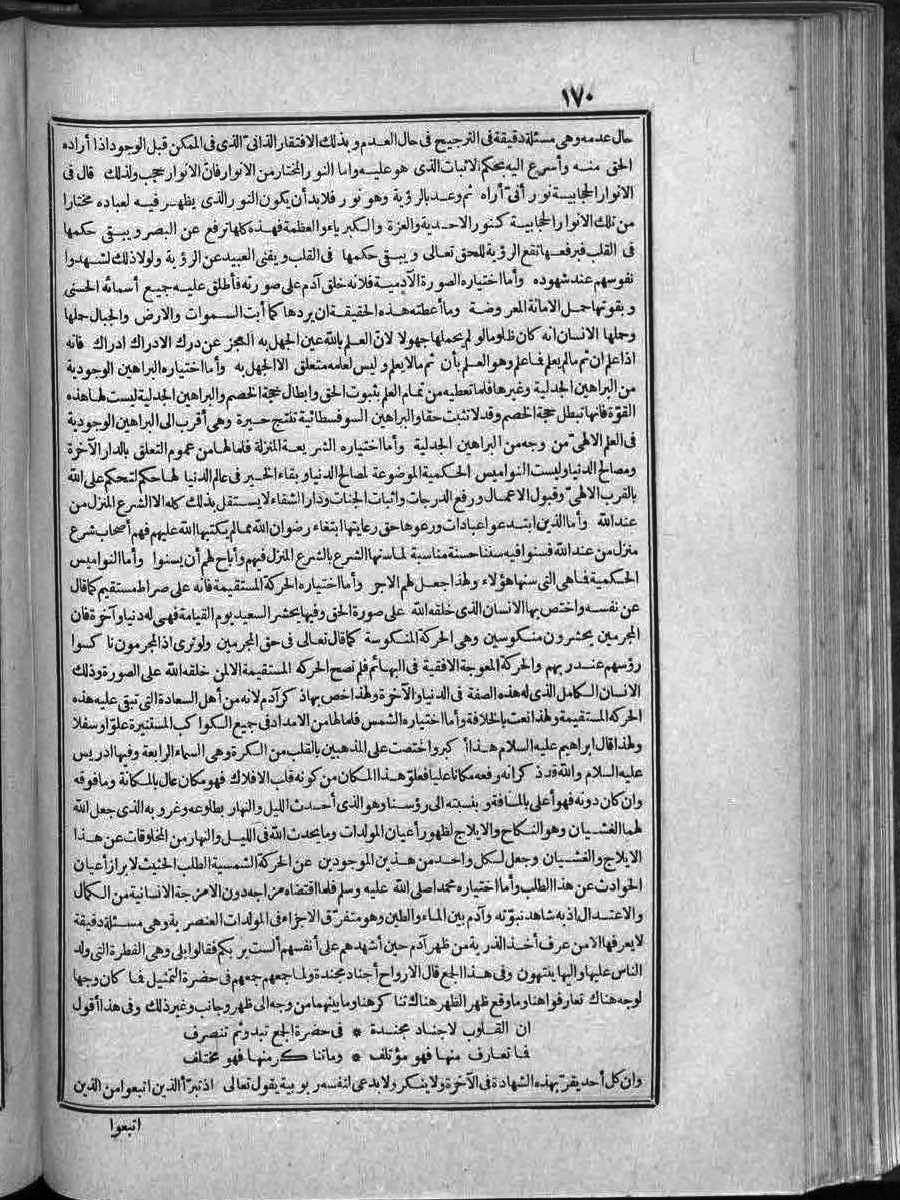 ١٧٠
حال عدمه وهى مسئلة دقيقة فى الترجيح فى حال العدم وبذلك الافتقار الذاتىّ الذى فى الممكن قبل الوجود اذا أراده
الحق منه وأسرع اليه بحكم الاثبات الذى هو عليه واما النور المختار من الانوار فان الانوار حجب ولذلك قال فى
الانوار الحجابية نور أنىّ أراه ثم وعد بالرؤية وهو نور فلابد أن يكون النور الذى يظهر فيه لعباده مختارا
من تلك الانوار الحجابية كنور الاحدية والعزة والكبرياء والعظمة فهذه كلها ترفع عن البصر ويبقى حكمها
فى القلب فبرفعها تقع الرؤية للحق تعالى ويبقى حكمها فى القلب ويفنى العبيد عن الرؤية ولولا ذلك لشهدوا
نفوسهم عند شهوده وأما اختياره الصورة الآدمية فلانه خلق آدم على صورته فأطلق عليه جميع أسمائه الحسنى
وبقوتها حمل الامانة المعروضة وما أعطته هذه الحقيقة ان يردها كما أبت السموات والارض والجبال حملها
وحملها الانسان انه كان ظلوما لو لم يحملها جهولا لان العلم بالله عين الجهل به العجز عن درك الادراك ادراك فانه
اذا علم ان ثم ما لم يعلم فما علم وهو العلم بأن ثم ما لا يعلم وليس لعلمه متعلق الا الجهل به وأما اختياره البراهين الوجودية
من البراهين الجدلية وغيرها فلما تعطيه من تمام العلم بثبوت الحق وابطال حجة الخصم والبراهين الجدلية ليست لها هذه
القوّة فانها تبطل حجة الخصم وقد لا تثبت حقا والبراهين السوفسطائية تنتج حيرة وهى أقرب الى البراهين الوجودية
فى العلم الالهىّ من وجه من البراهين الجدلية وأما اختياره الشريعة المنزلة فلما لها من عموم التعلق بالدار الآخرة
ومصالح الدنيا وليست النواميس الحكمية الموضوعة لمصالح الدنيا وبقاء الخير فى عالم الدنيا لها حكم لتحكم على الله
بالقرب الالهىّ وقبول الاعمال ورفع الدرجات واثبات الجنات ودار الشقاء لا يستقل بذلك كله الا الشرع المنزل من
عند الله وأما الذين ابتدعوا عبادات ورعوها حق رعايتها ابتغاء رضوان الله مما لم يكتبها الله عليهم فهم أصحاب شرع
منزل من عند الله فسنوا فيه سننا حسنة مناسبة لما سنها الشرع بالشرع المنزل فيهم وأباح لهم أن يسنوا وأما النواميس
الحكمية فما هى التى سنها هؤلاء ولهذا جعل لهم الاجر وأما اختياره الحركة المستقيمة فانه على صراط مستقيم كما قال
عن نفسه واختص بها الانسان الذى خلقه الله على صورة الحق وفيها يحشر السعيد يوم القيامة فهى له دنيا وآخرة فان
المجرمين يحشرون منكوسين وهى الحركة المنكوسة كما قال تعالى فى حق المجرمين ولو ترى اذ المجرمون ناكسوا
رؤسهم عند ربهم والحركة المعوجة الافقية فى البهائم فلم تصح الحركة المستقيمة الا لمن خلقه الله على الصورة وذلك
الانسان الكامل الذى له هذه الصفة فى الدنيا والآخرة ولهذا خص بها ذكر آدم لانه من أهل السعادة التى تبقى عليه هذه
الحركة المستقيمة ولهذا نعت بالخلافة وأما اختياره الشمس فلما لها من الامداد فى جميع الكواكب المستنيرة علوّا وسفلا
ولهذا قال ابراهيم عليه السلام هذا أكبر واختصت على المذهبين بالقلب من الكرة وهى السماء الرابعة وفيها ادريس
عليه السلام والله قد ذكر انه رفعه مكانا عليا فعلوّ هذا المكان من كونه قلب الافلاك فهو مكان عال بالمكانة وما فوقه
وان كان دونه فهو أعلى بالمسافة وبنسبته الى رؤسنا وهو الذى أحدث الليل والنهار بطلوعه وغروبه الذى جعل الله
لهما الغشيان وهو النكاح والايلاج لظهور أعيان المولدات وما يحدث الله فى الليل والنهار من المخلوقات عن هذا
الايلاج والغشيان وجعل لكل واحد من هذين الموجودين عن الحركة الشمسية الطلب الحثيث لابراز أعيان
الحوادث عن هذا الطلب وأما اختياره محمدا صلى الله عليه وسلم فلما اقتضاه مزاجه دون الامزجة الانسانية من الكمال
والاعتدال اذ به شاهد نبوّته وآدم بين الماء والطين وهو متفرّق الاجزاء فى المولدات العنصرية وهى مسئلة دقيقة
لا يعرفها الا من عرف أخذ الذرية من ظهر آدم حين أشهدهم على أنفسهم ألست بربكم فقالوا بلى وهى الفطرة التى ولد
الناس عليها واليها ينتهون وفى هذا الجع قال الارواح أجناد مجندة ولما جعهم جعهم فى حضرة التمثيل فما كان وجها
لوجه هناك تعارفوا هنا وما وقع ظهر الظهر هناك تناكر هنا وما بينهما من وجه الى ظهر وجانب وغير ذلك وفى هذا أقول
ان القلوب لاجناد مجندة * فى حضرة الجع تبدو ثم تنصرف
فما تعارف منها فهو مؤتلف * وما تناكر منها فهو مختلف
وان كل أحد يقرّ بهذه الشهادة فى الآخرة ولا ينكر ولا يدعى لنفسه ربوبية يقول تعالى اذ تبرّأ الذين اتبعوا من الذين
اتبعوا